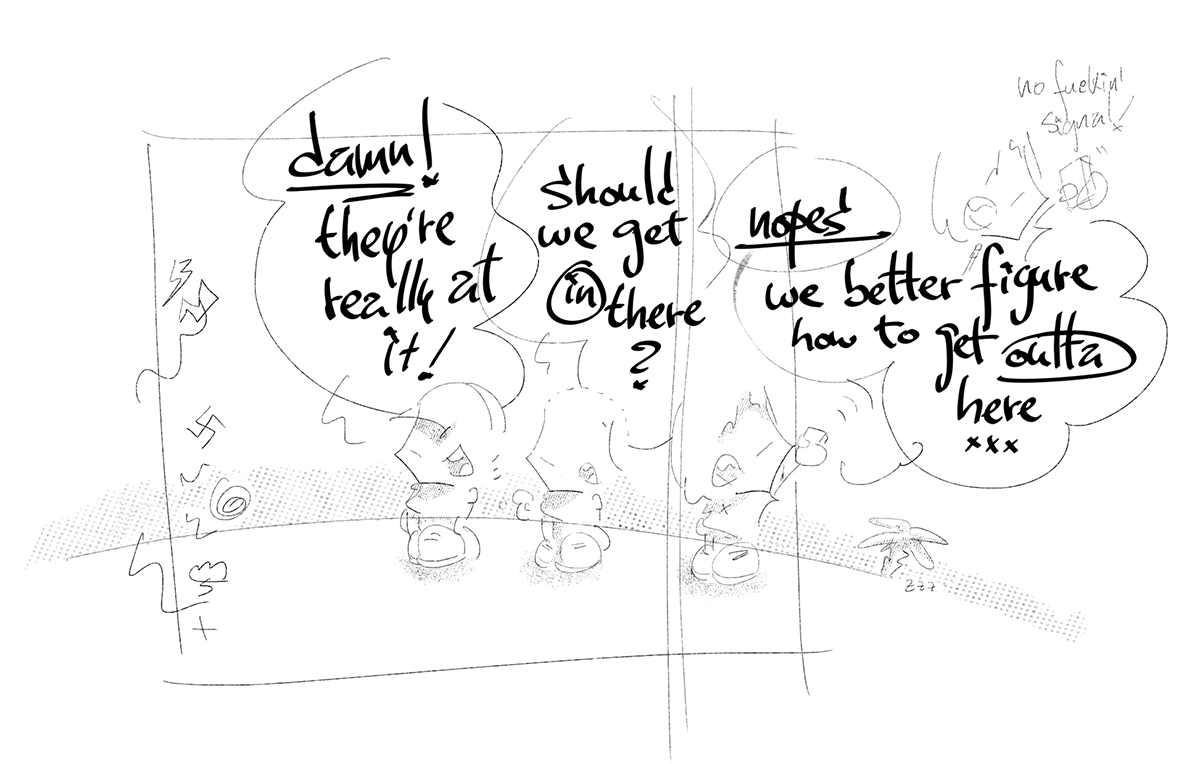 damn!
they're
really at
it!
Should
we get
in there
?
nopes!
we better figure
how to
get outta
here
xxx
no fuckin'
signal!
zzz